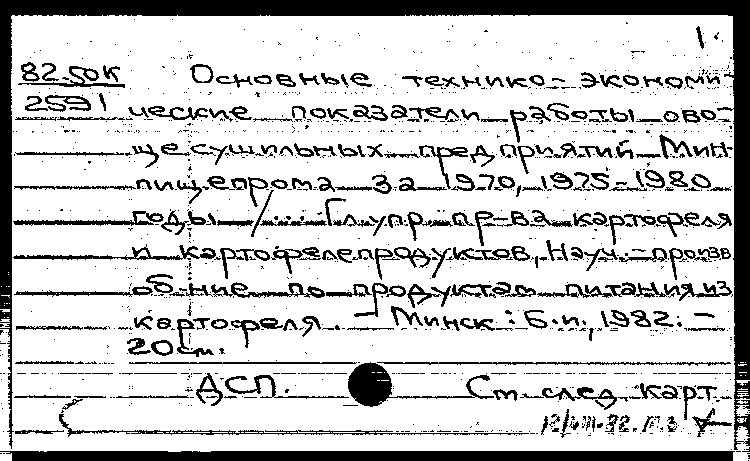 1.
82.50К Основные технико-экономи-
2591 ческие показатели работы ово-
щесушильных предприятий Мин
пищепрома за 1970, 1975-1980
годы /... Гл. упр. пр-ва картофеля
и картофелепродуктов, Науч.-произв
об-ние по продуктам питания из
картофеля. - Минск : Б.и., 1982. -
20 см.
ДСП. См. след. карт